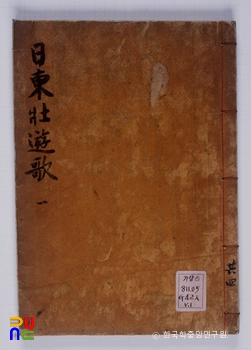 日東壯遊歌
一
가람古
811.05
v.1
© 한국학중앙연구원